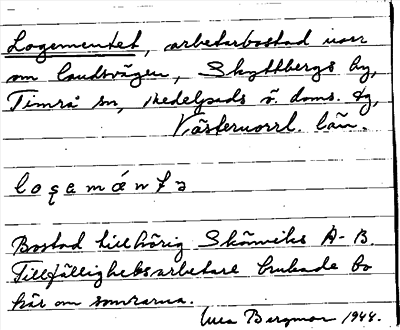 Logementet, arbetarbostad norr
om landsvägen, Skyttbergs by,
Timrå sn, Medelpads ö. doms. dg,
Västernorrl. län.
Bostad tillhörig Skönviks A-B.
Tillfällighetsarbetare brukade bo
här om somrarna.
Bergman 1944.